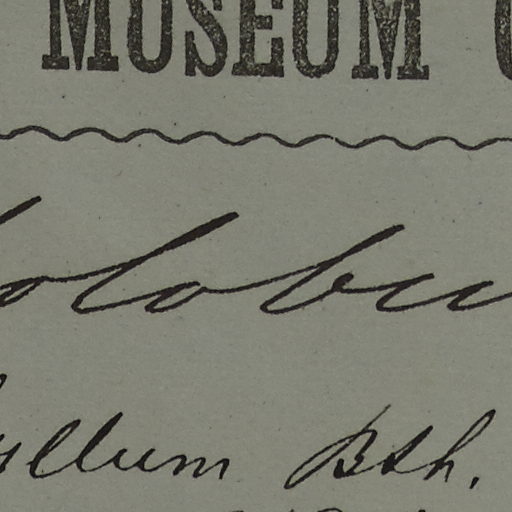 MUSEUM
olobu
yllum Bth.